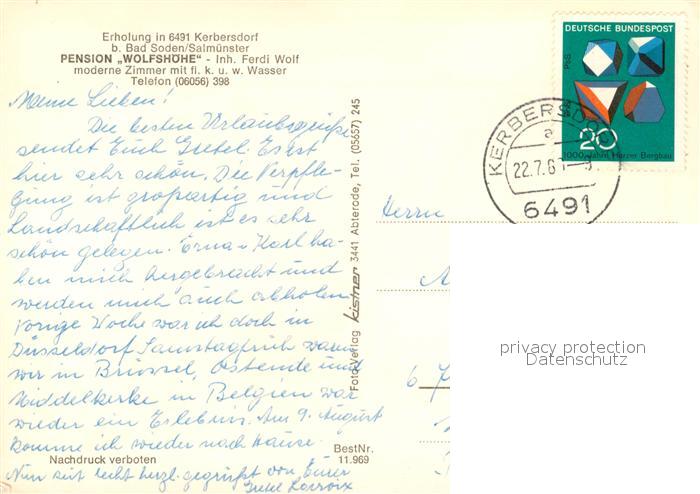 Erholung in 6491 Kerbersdorf
b. Bad Soden/Salmünster
PENSION „WOLFSHÖHE" - Inh. Ferdi Wolf
moderne Zimmer mit fl. k. u. w. Wasser
Telefon (06056) 398
Meine Lieben!
Die besten Urlaubsgrüße
sendet Euch Gretel. Es ist
hier sehr schön. Die Verpfle-
gung ist großartig und
Landschaftlich ist es sehr
schön gelegen. Erna + Karl ha-
ben mich hergebracht und
werden mich auch abholen.
Vorige Woche war ich doch in
Düsseldorf. Samstagfrüh waren
wir in Brüssel, Ostende und
Middelkerke in Belgien war
wieder ein Erlebnis. Am 9. August
komme ich wieder nach Hause.
Nun seit recht herzl. gegrüßt von Eurer
Gretel Lacroix
Nachdruck verboten
BestNr.
11.969
Foto-Verlag Kistner 3441 Abterode, Tel. (05657) 245
DEUTSCHE BUNDESPOST
PbS
20
1000 Jahre Harzer Bergbau
KERBERSDORF
a
22.7.6
6491
Herrn
privacy protection
Datenschutz